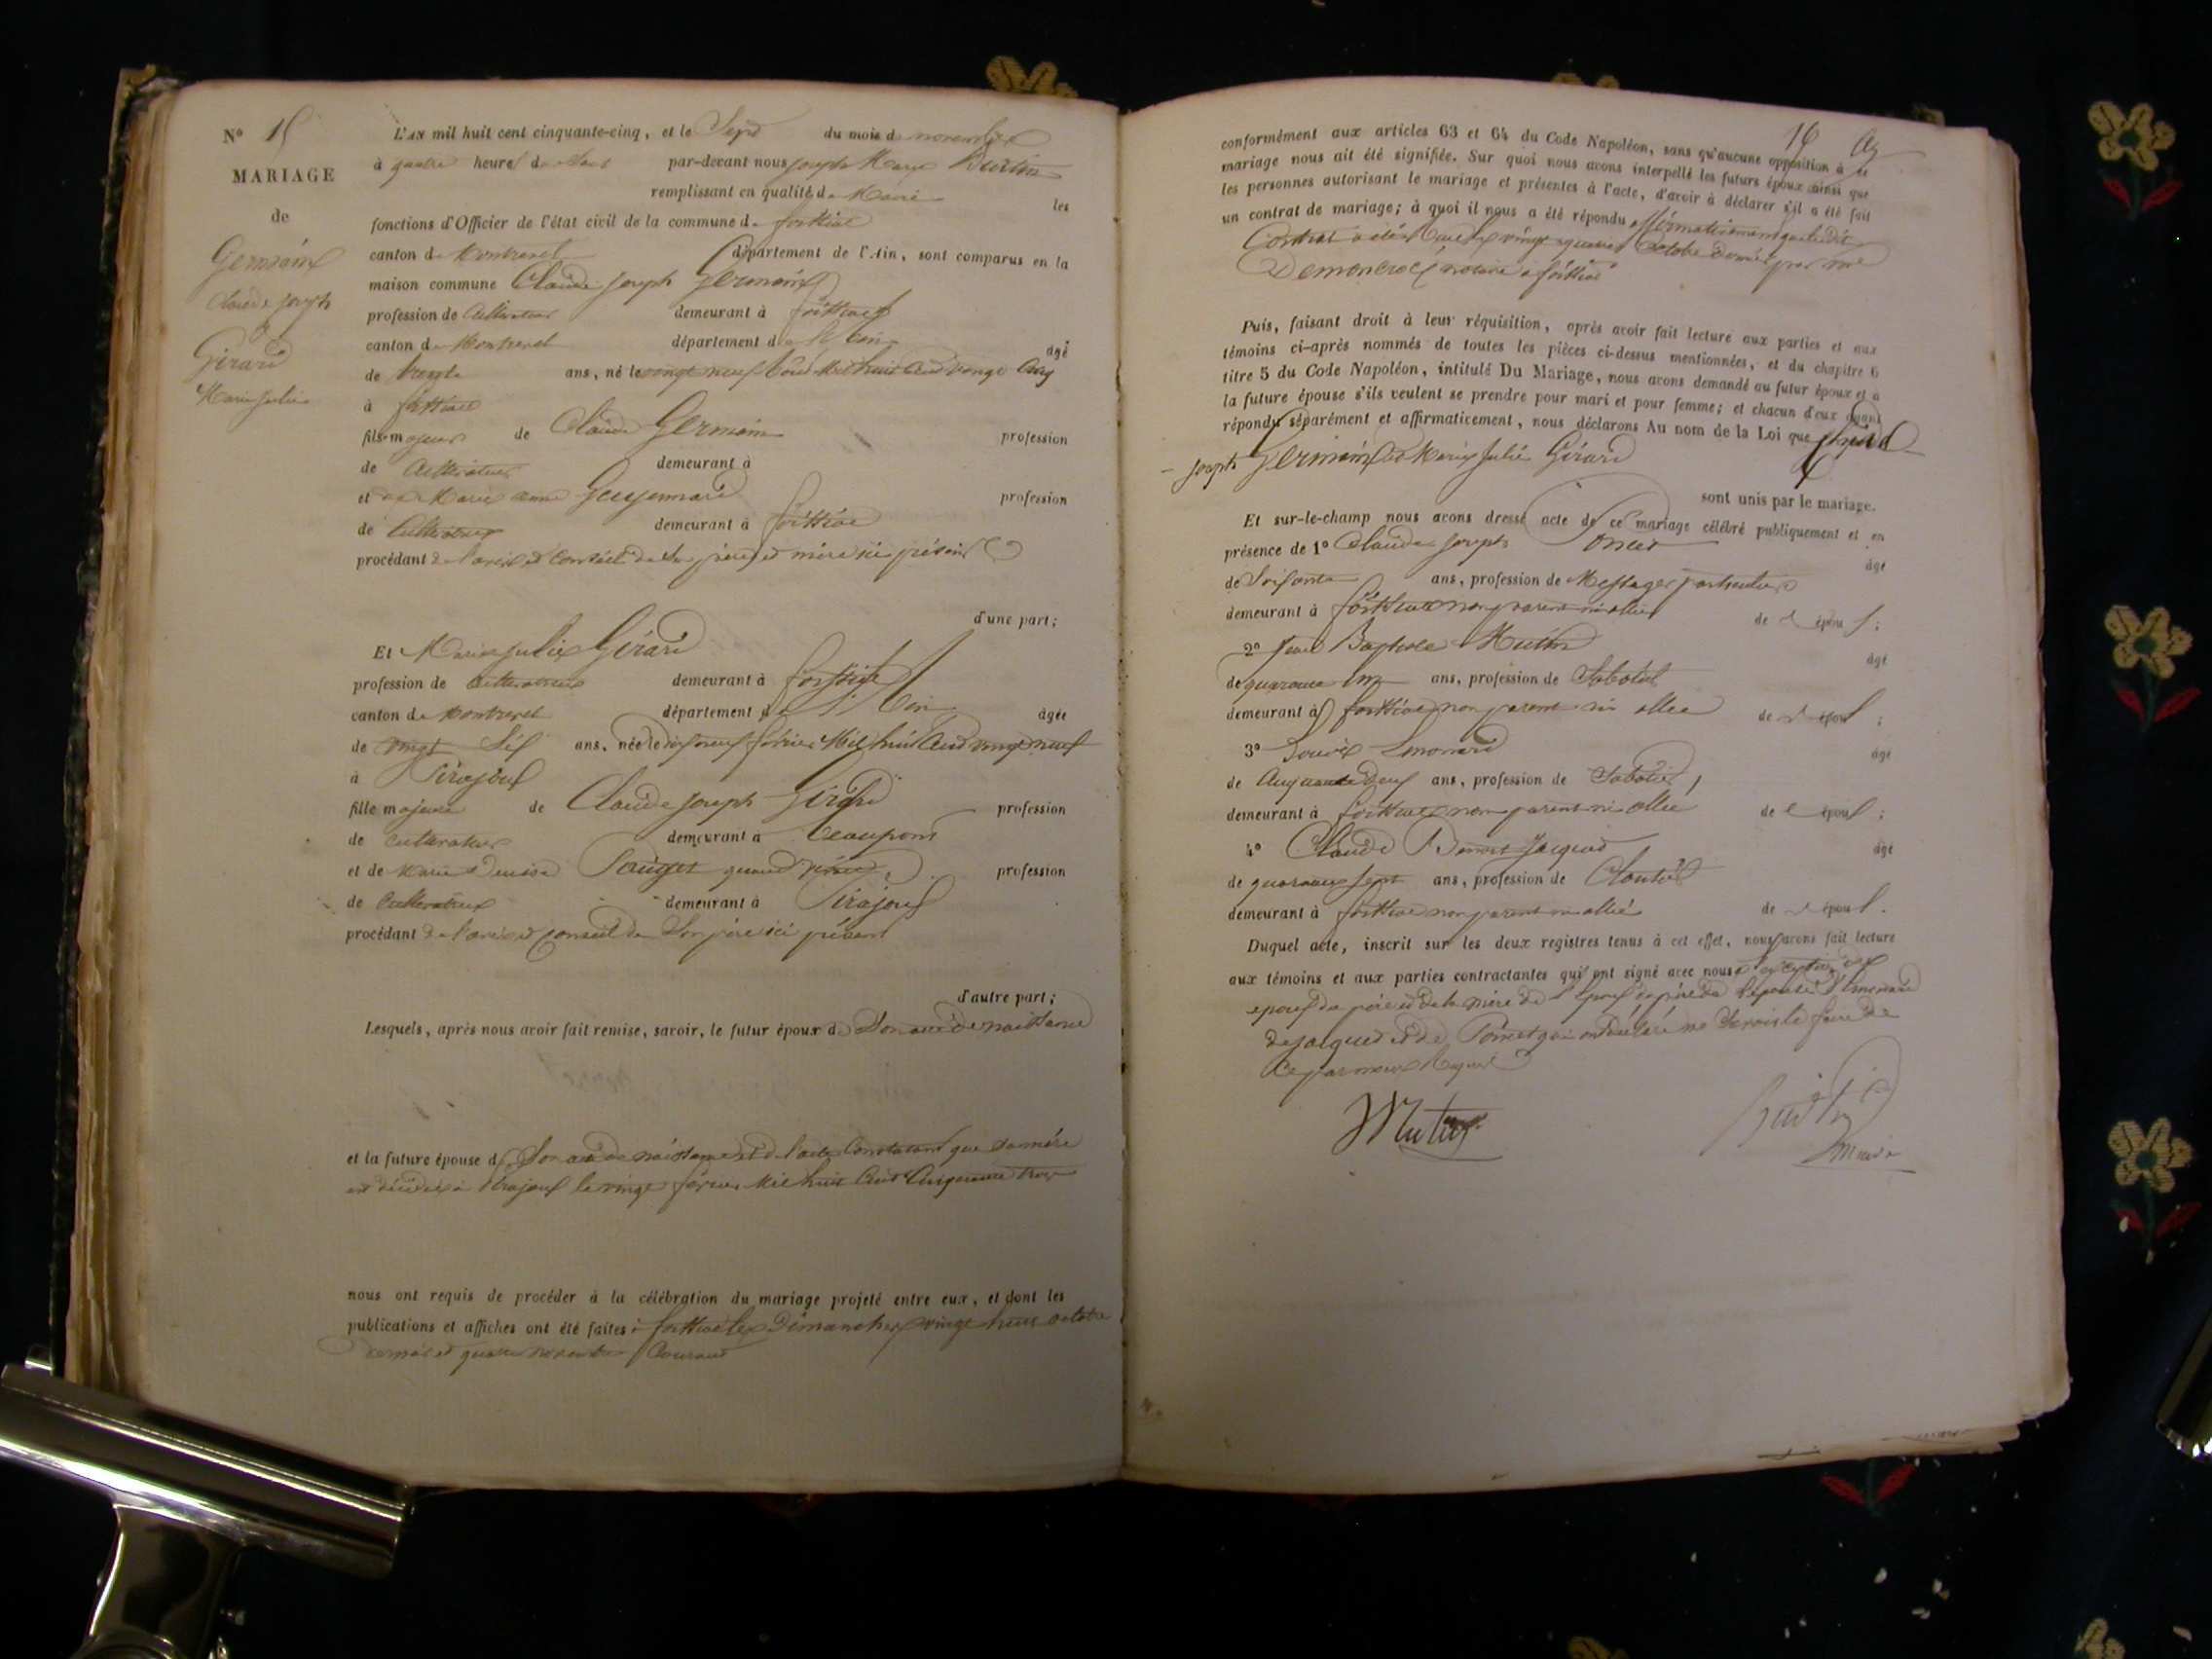 N° 15
MARIAGE
de
Germain
Claude joseph
Girard
Marie julie
L'AN mil huit cent cinquante-cinq, et le Sept du mois de novembre
à quatre heures du Soir par-devant nous joseph Marie Burtin
remplissant en qualité de Maire les
fonctions d'Officier de l'état civil de la commune de foissiat
canton de Montrevel département de l'Ain, sont comparus en la
maison commune Claude joseph Germain
profession de Cultivateur demeurant à foissiat
canton de Montrevel département de l'Ain âgé
de trente ans, né le vingt neuf Mil huit Cent vingt Cinq
à foissiat
fils majeur de Claude Germain profession
de Cultivateur demeurant à
et de Marie anne profession
de Cultivatrice demeurant à foissiat
procédant de l'avis et Conseil de Ses père et mère ici présent
d'une part;
Et Marie julie Girard
profession de Cultivatrice demeurant à foissiat
canton de Montrevel département de l'Ain âgée
de vingt Six ans, née le dix neuf février Mil huit Cent vingt neuf
à Pirajoux
fille majeure de Claude joseph Girard profession
de cultivateur demeurant à Beaupont
et de Marie Denise quand vivait profession
de Cultivatrice demeurant à Pirajoux
procédant de l'avis et Conseil de Son père ici présent
d'autre part;
Lesquels, après nous avoir fait remise, savoir, le futur époux de Son acte de naissance
et la future épouse de Son acte de naissance et de l'acte Constatant que sa mère
est décédée à Pirajoux le vingt février Mil huit Cent Cinquante trois
nous ont requis de procéder à la célébration du mariage projeté entre eux, et dont les
publications et affiches ont été faites à foissiat les Dimanches vingt huit octobre
dernier et quatre novembre Courant
16
conformément aux articles 63 et 64 du Code Napoléon, sans qu'aucune opposition à ce
mariage nous ait été signifiée. Sur quoi nous avons interpellé les futurs époux ainsi que
les personnes autorisant le mariage et présentes à l'acte, d'avoir à déclarer s'il a été fait
un contrat de mariage; à quoi il nous a été répondu affirmativement que le dit
Contrat a été le vingt quatre octobre dernier par me
notaire à foissiat
Puis, faisant droit à leur réquisition, après avoir fait lecture aux parties et aux
témoins ci-après nommés de toutes les pièces ci-dessus mentionnées, et du chapitre 6
titre 5 du Code Napoléon, intitulé Du Mariage, nous avons demandé au futur époux et à
la future épouse s'ils veulent se prendre pour mari et pour femme; et chacun d'eux ayant
répondu séparément et affirmativement, nous déclarons Au nom de la Loi que Claude
joseph Germain et Marie julie Girard
sont unis par le mariage.
Et sur-le-champ nous avons dressé acte de ce mariage célébré publiquement et en
présence de 1° Claude joseph Poncet âgé
de Soixante ans, profession de Messager particulier
demeurant à foissiat non parent ni allié de l'époux;
2° jean Baptiste Mutin âgé
de quarante ans, profession de Sabotier
demeurant à foissiat non parent ni allié de l'époux;
3° Louis Simonard âgé
de Cinquante Deux ans, profession de Sabotier
demeurant à foissiat non parent ni allié de l'époux;
4° Claude Benoit Jacquet âgé
de quarante sept ans, profession de Cloutier
demeurant à foissiat non parent ni allié de l'époux.
Duquel acte, inscrit sur les deux registres tenus à cet effet, nous avons fait lecture
aux témoins et aux parties contractantes qui ont signé avec nous à l'exception des
époux du père et de la mère de l'époux du père de l'épouse de Simonard
de jacquet et de Poncet qui ont déclaré ne Savoir le faire de
Ce par nous Requis
Mutin
Burtin
maire